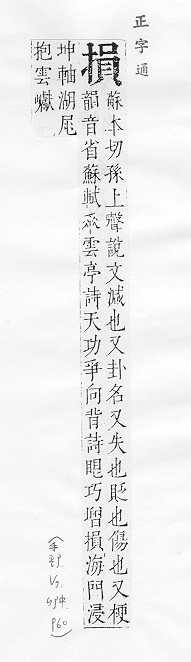 正字通
損
蘇本切孫上聲說文減也又卦名又失也貶也傷也又梗
韻音省蘇軾垂雲亭詩天功爭向背詩眼巧增損海門浸
坤軸湖尾
抱雲巘
P60